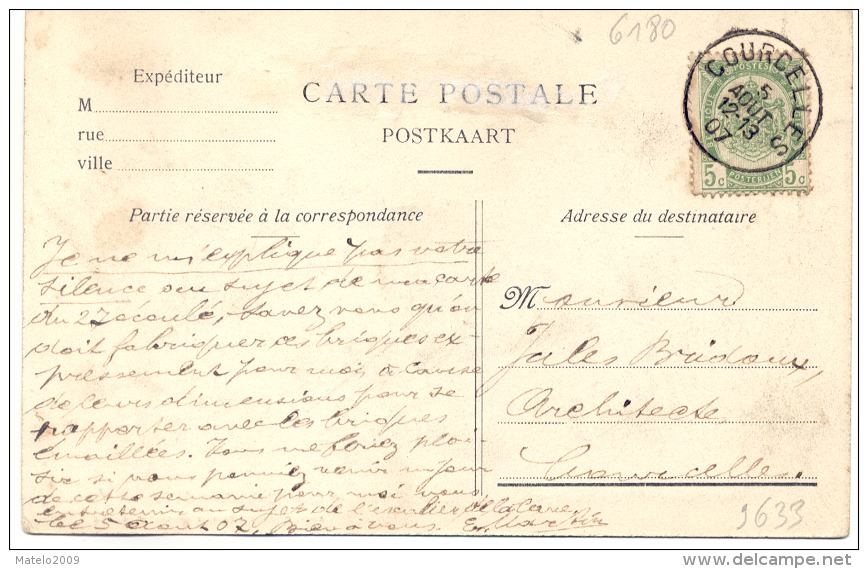 6180
Expéditeur
M
rue
ville
CARTE POSTALE
POSTKAART
COURCELLES
5
AOUT
12-13
07
POSTES
5c POSTERIJEN 5c
Partie réservée à la correspondance
Adresse du destinataire
Je ne m'explique pas votre
silence au sujet de ma carte
du 27 écoulé, savez vous qu'on
doit fabriquer ces briques ex-
pressement pour moi à cause
de leurs dimensions pour se
rapporter avec les briques
émaillées. Vous me feriez plai-
sir si vous pouviez venir un jour
de cette semaine pour moi vous
entretenir au sujet de l'escalier de la cave
le 5 août 07. Bien à vous. E. Martin
Monsieur
Jules Bridoux,
Architecte
Courcelles.
9633
Matelo2009
www.delcampe.net